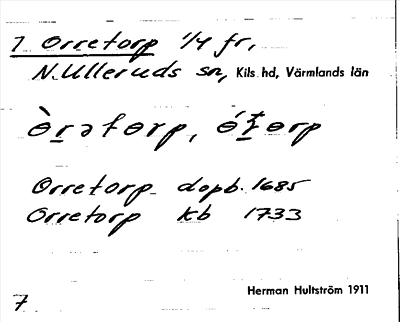 7 Orretorp 1/4 fr,
N. Ulleruds sn, Kils hd, Värmlands län
Orretorp dopb. 1685
Orretorp kb 1733
Herman Hultström 1911
7